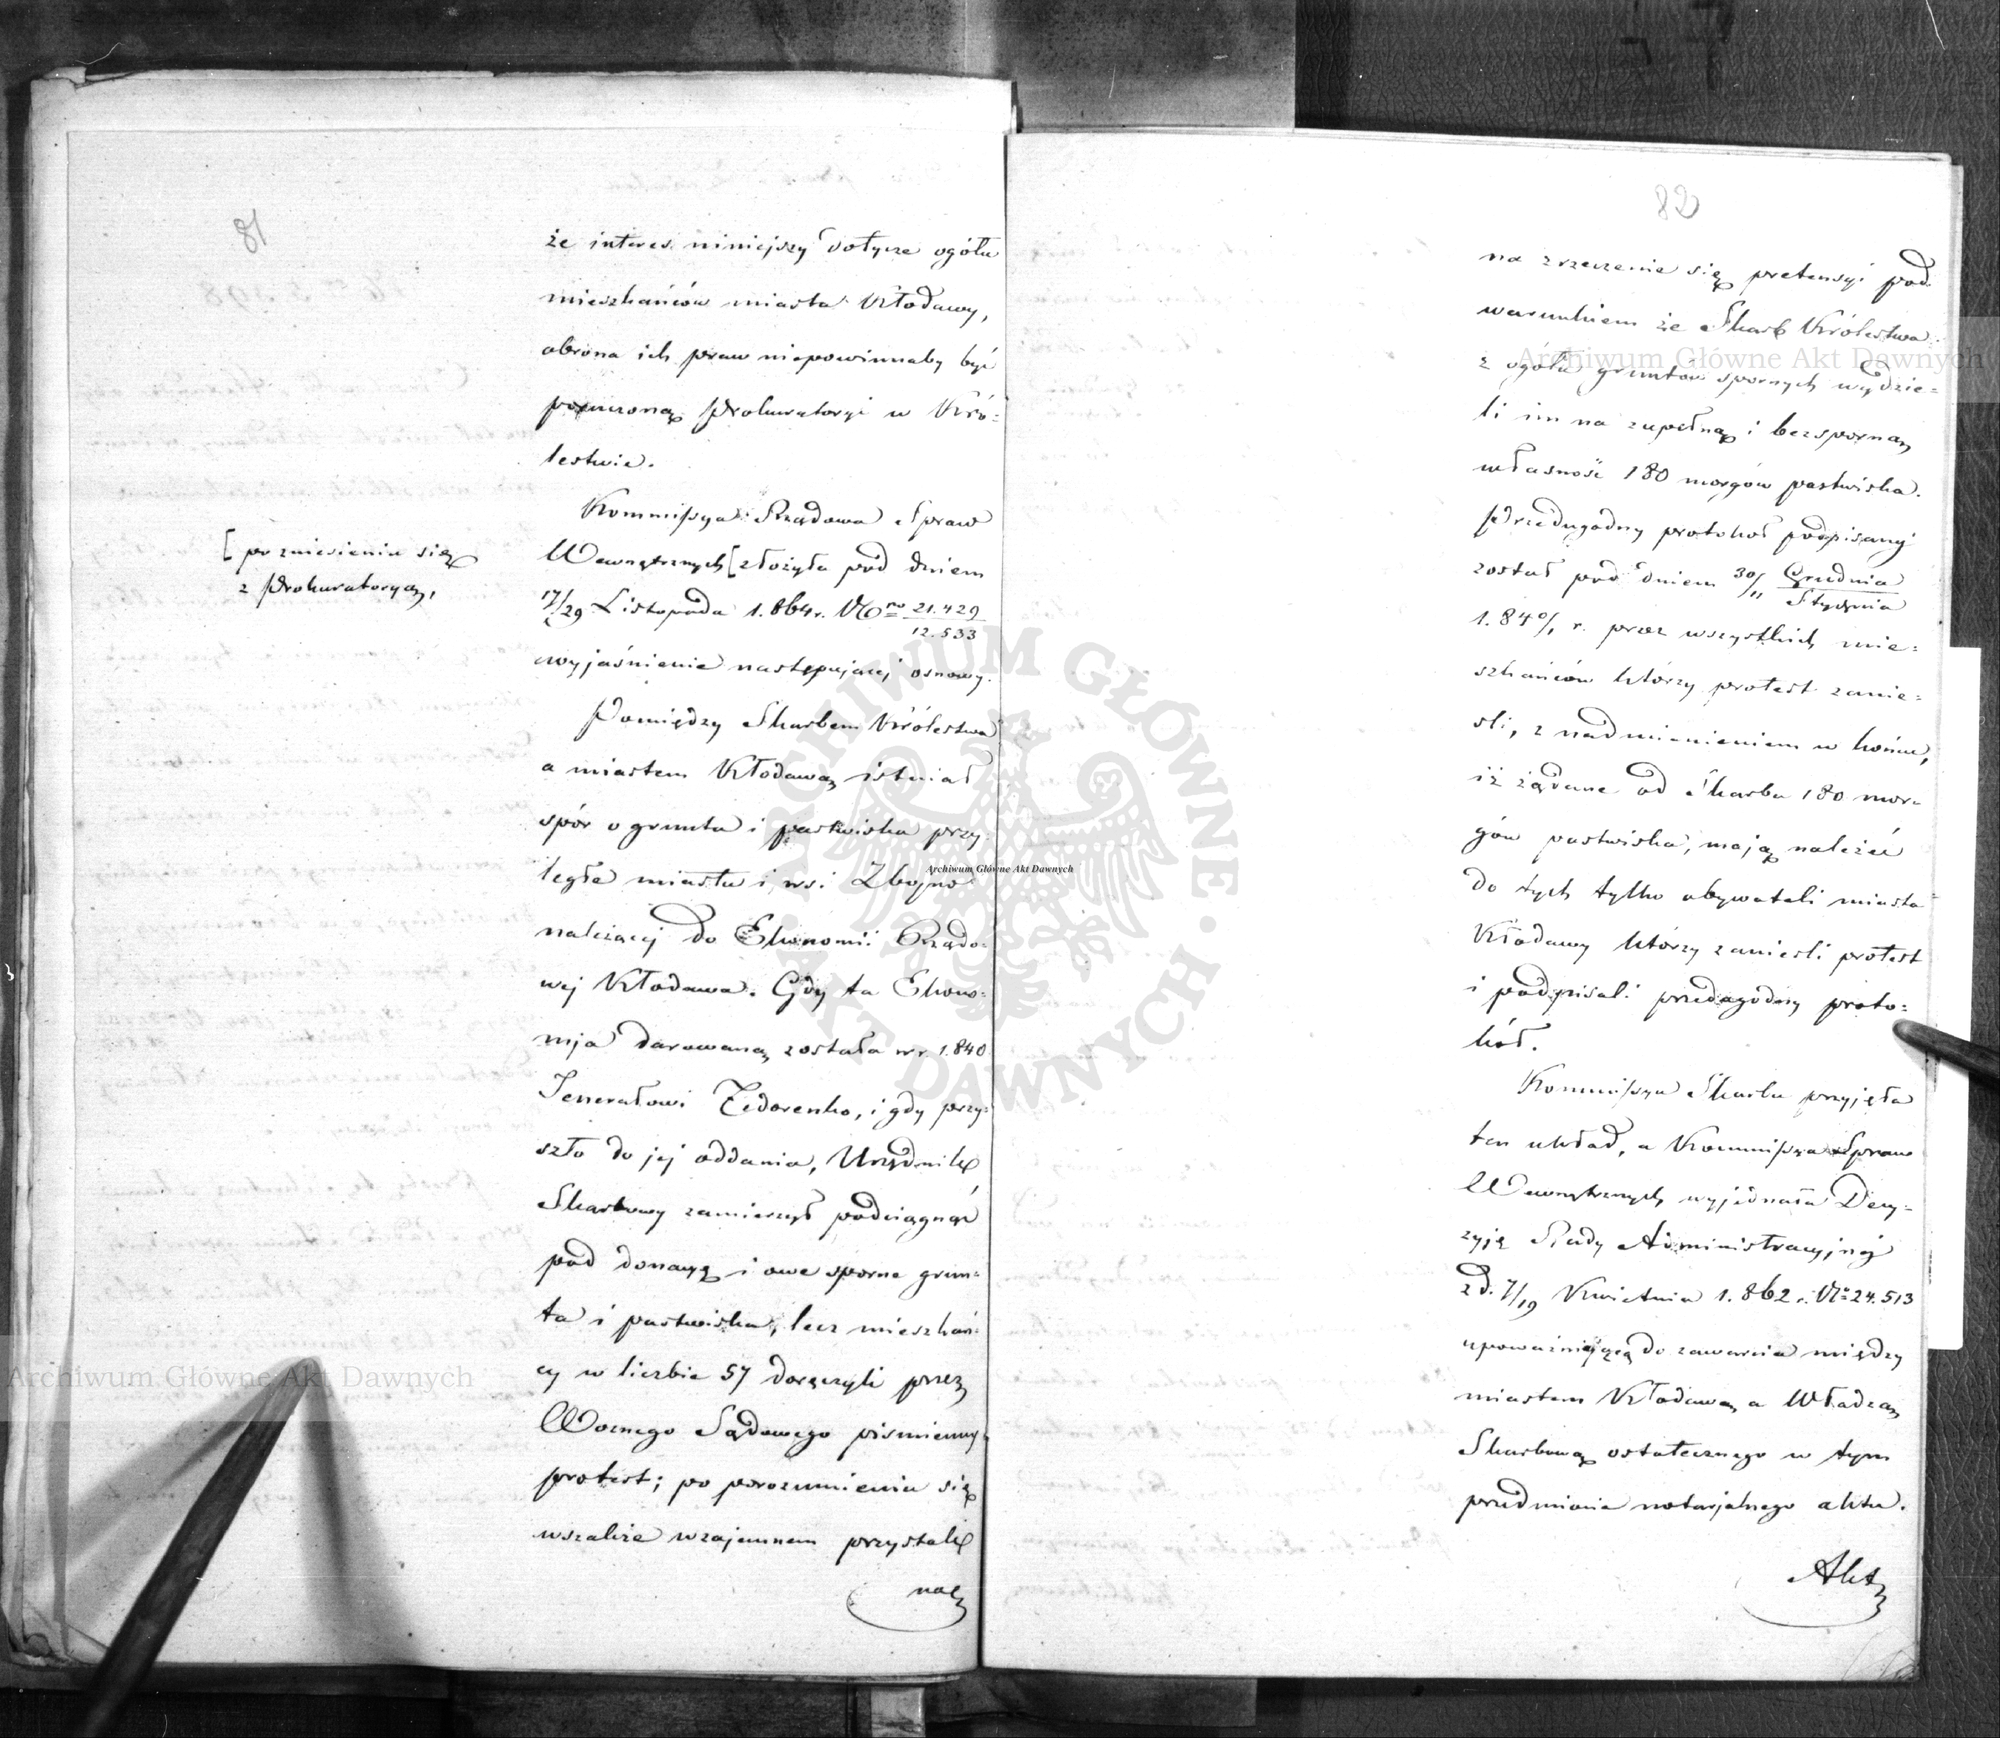 81
że interes niniejszy dotycze ogółu
mieszkańców miasta Kłodawy,
obrona ich praw niepowinnaby być
poruczoną Prokuratoryi w Kró-
lestwie.
Kommissya Rządowa Spraw
Wewnętrznych [złożyła pod dniem
[po zniesieniu się
z Prokuratoryą,
17/29 Listopada 1.864 r. No 21.429/12.533
wyjaśnienie następującej osnowy.
Pomiędzy Skarbem Królestwa
a miastem Kłodawą istniał
spór o grunta i pastwiska przy-
ległe miastu i wsi Zbojno
należącej do Ekonomii Rządo-
wej Kłodawa. Gdy ta Ekono-
mja darowaną została w r. 1.840
Jenerałowi Fedorenko, i gdy przy-
szło do jej oddania, Urzędnik
Skarbowy zamierzył podciągnąć
pod donacyą i owe sporne grun-
ta i pastwiska, lecz mieszkań-
cy w liczbie 57 doręczyli przez
Woźnego Sądowego piśmienny
protest; po porozumieniu się
wszakże wzajemnem przystali
na
82
na zrzeczenie się pretensyi pod
warunkiem że Skarb Królestwa
z ogółu gruntów spornych wydzie-
li im na zupełną i bezsporną
własność 180 morgów pastwiska.
Przedugodny protokół podpisany
został pod dniem 30/11 Grudnia/Stycznia
1.840/1 r. przez wszystkich mie-
szkańców którzy protest zanie-
śli, z nadmienieniem w końcu,
iż żądane od Skarbu 180 mor-
gów pastwiska, mają należeć
do tych tylko obywateli miasta
Kłodawy którzy zanieśli protest
i podpisali przedugodny proto-
kół.
Kommissya Skarbu przyjęła
ten układ, a Kommissya Spraw
Wewnętrznych wyjednała Decy-
zyję Rady Administracyjnej
z d. 7/19 Kwietnia 1.862 r. No 24.513
upoważniającą do zawarcia między
miastem Kłodawą a Władzą
Skarbową ostatecznego w tym
przedmiocie notarjalnego aktu.
Akt
Archiwum Główne Akt Dawnych
Archiwum Główne Akt Dawnych
Archiwum Główne Akt Dawnych
ARCHIWUM GŁÓWNE AKT DAWNYCH